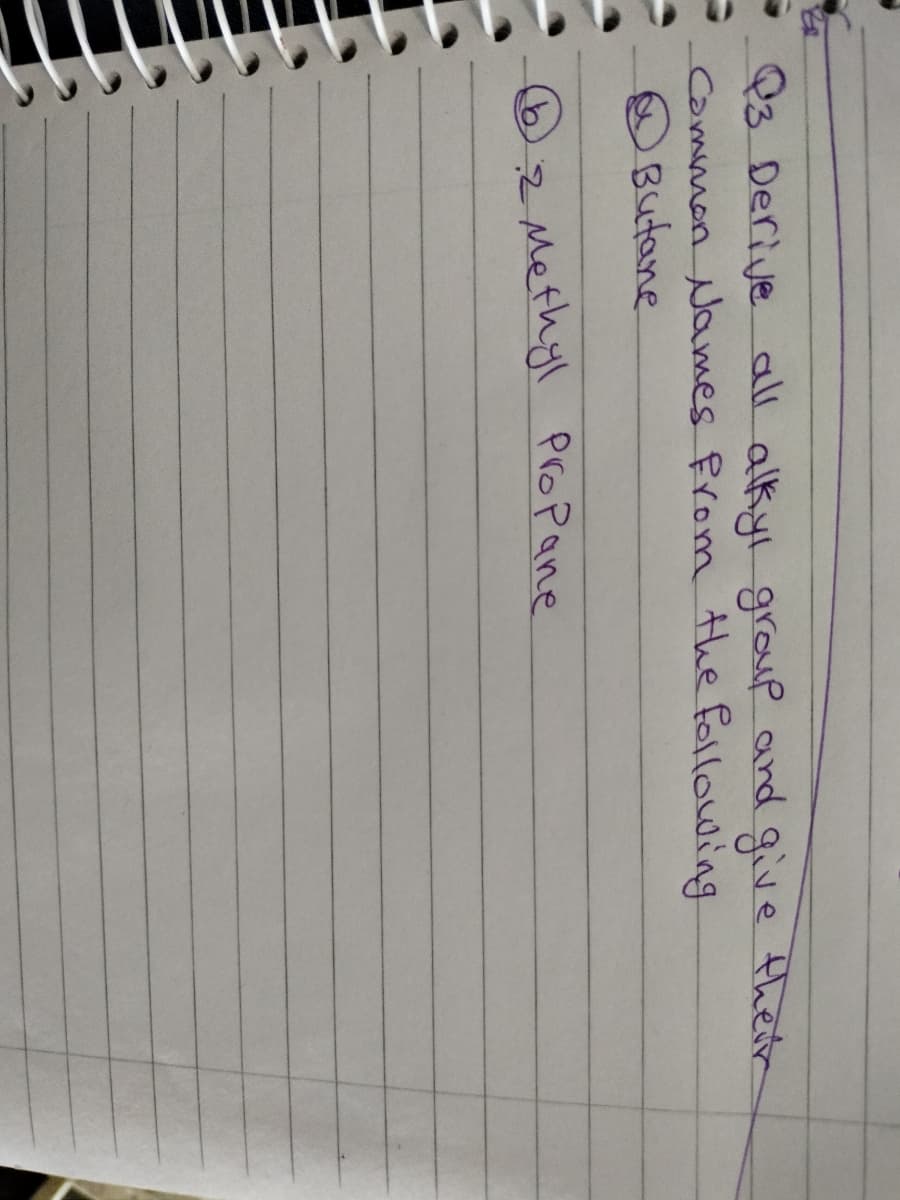 Q3 Derive all alkyl group and give their
Common Names From the following
(a) Butane
(b) 2 Methyl Propane